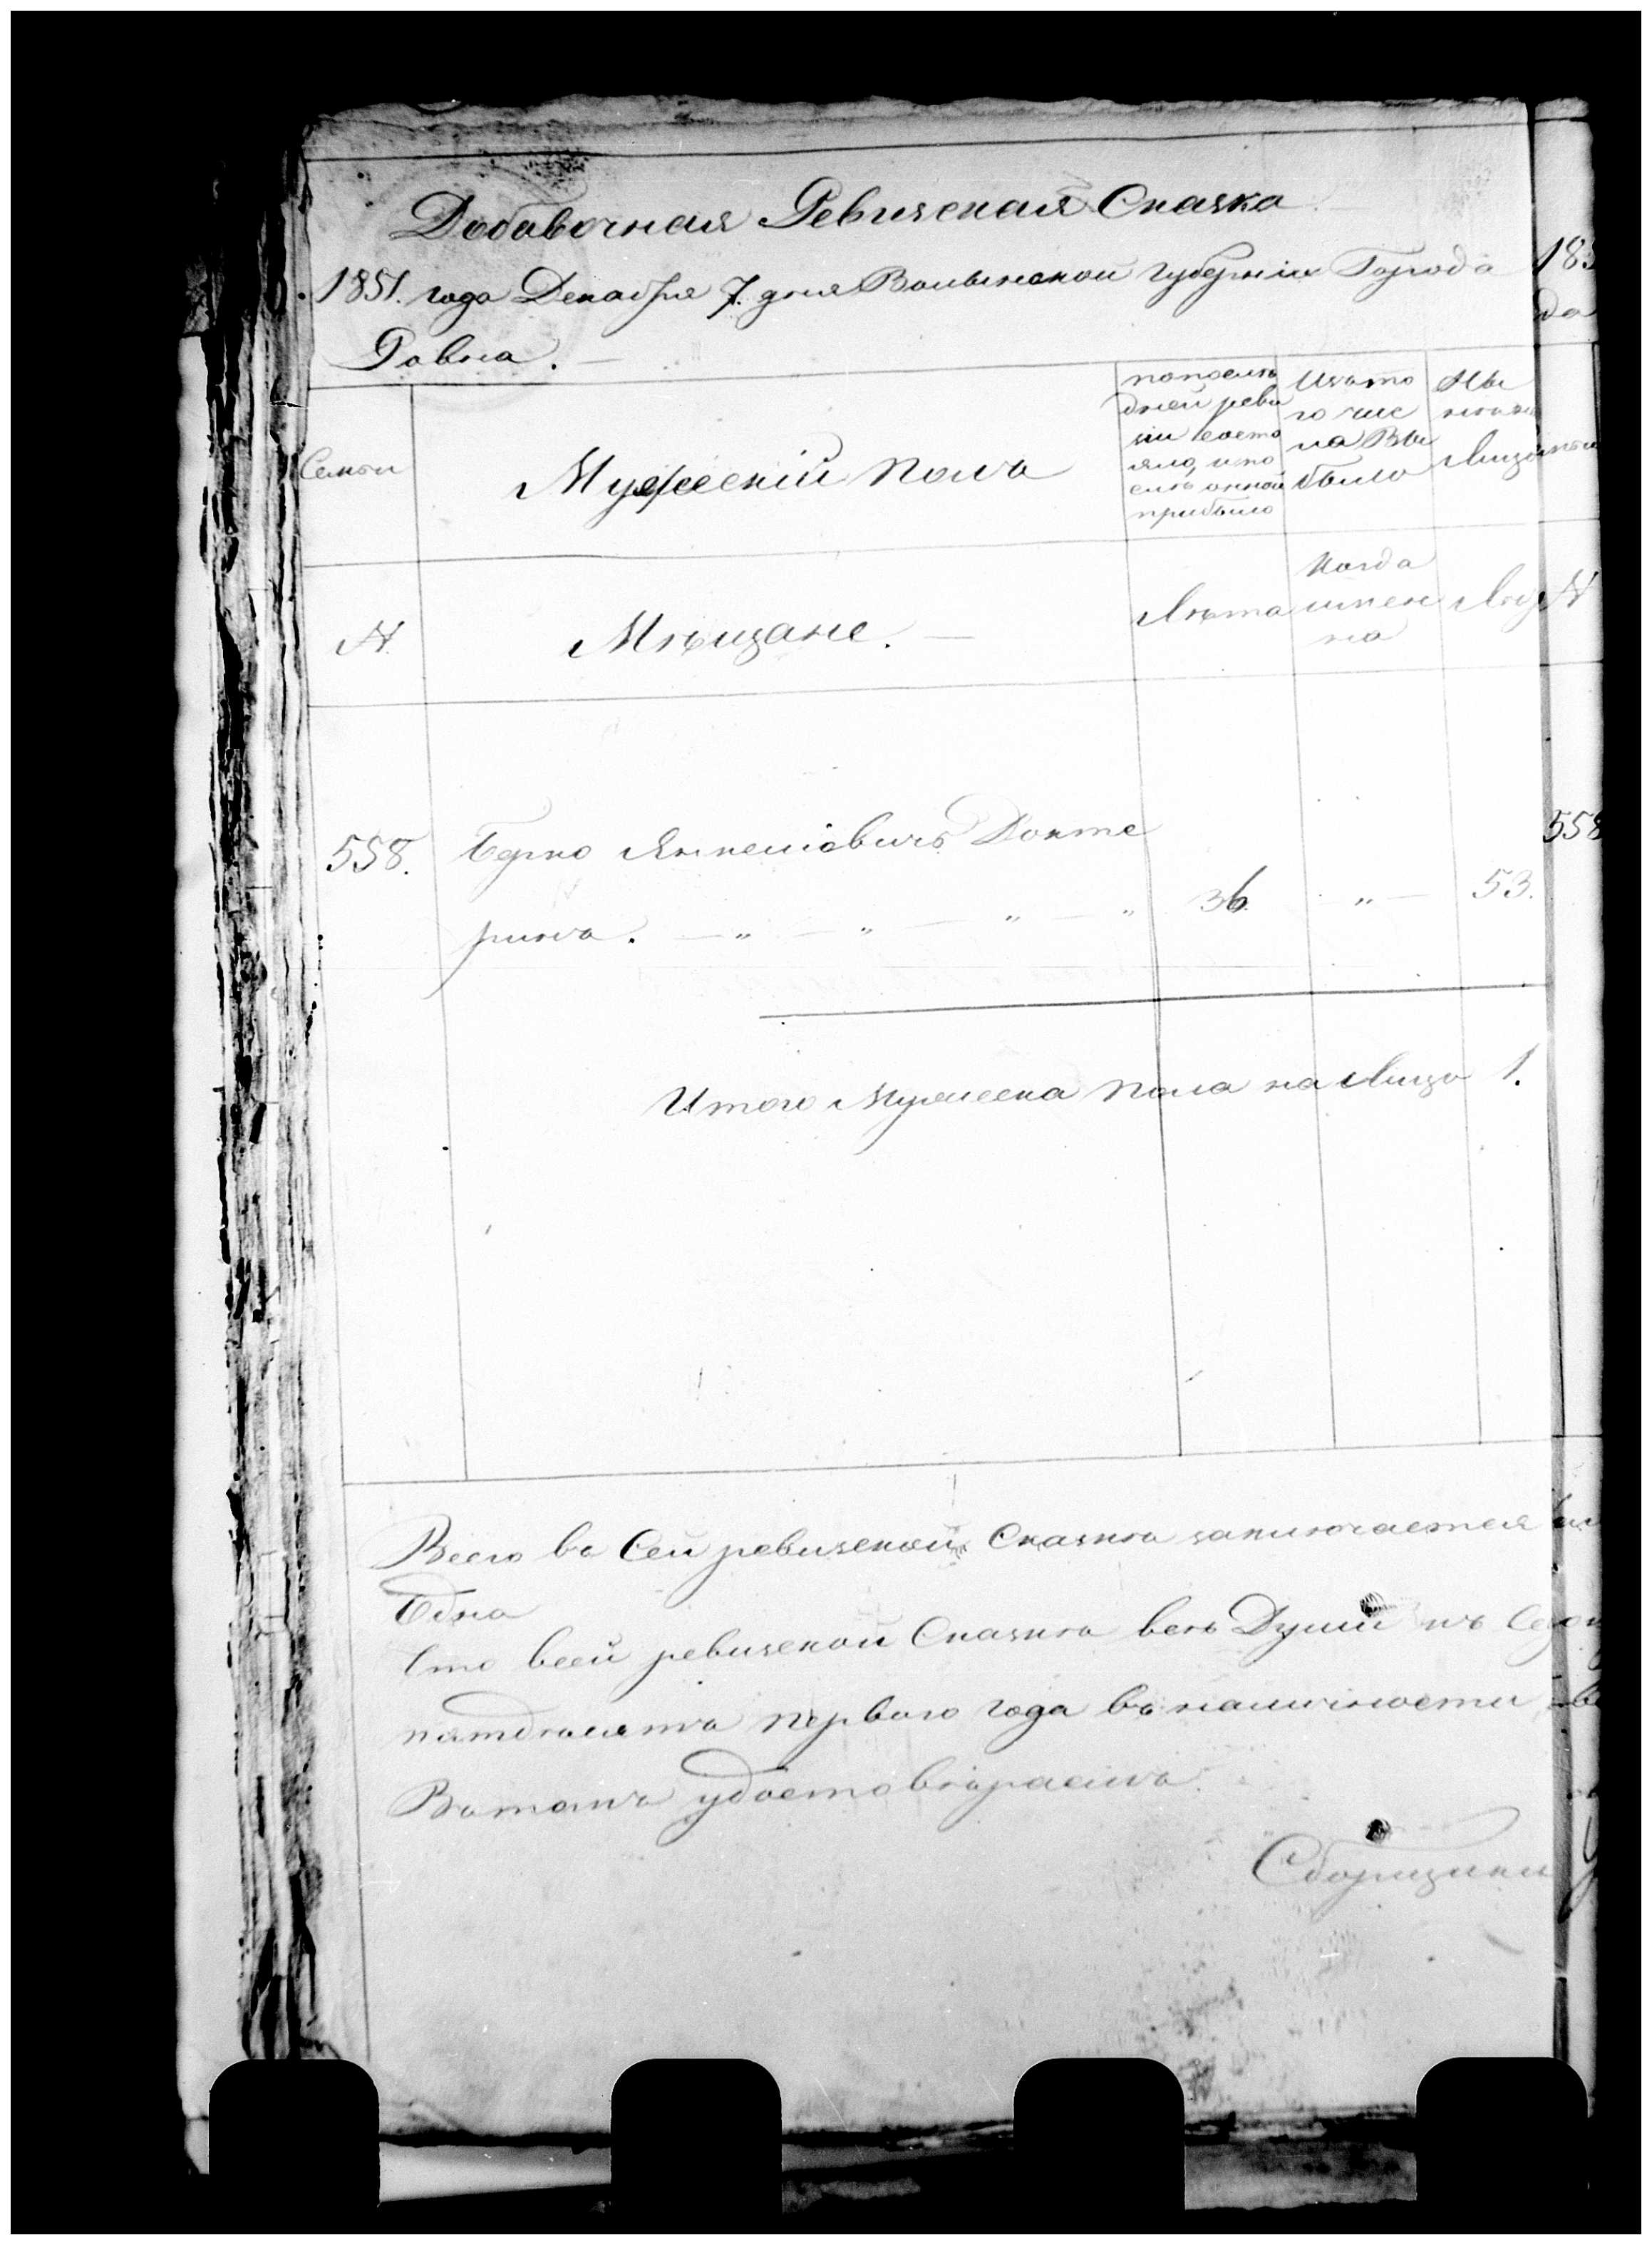 Добавочная Ревизская Сказка
1851. года Декабря 7. дня Волынской губернiи Города
Ровна.
Семьи
Мужескiй полъ
по послѣ
дней реви
зiи состо
яло, и по
слѣ оной
прибыло
Изъ то
го чис
ла Вы
было
Ны
нѣ на
Лицо
N
Мѣщане.
Лѣта
когда
имен
но
Лѣт
558.
Берко Янкелiовичъ Докте
ринъ. — „ — „ — „ — „
36.
„ —
53.
Итого Мужеска пола на Лицо 1.
Всего въ Сей ревизской Сказкѣ заключается
Одна
Что всей ревизской Сказкѣ всѣ Души къ
пятдесятъ перваго года въ наличности
Вътомъ удостовѣряемъ
Сборщики
183
да
N
558